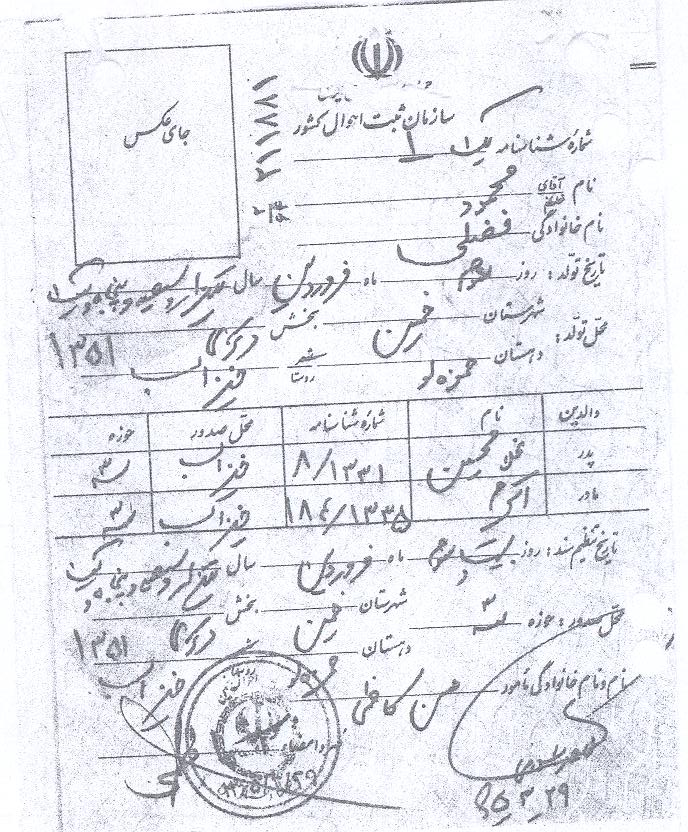 جای عکس
سازمان ثبت احوال کشور
۲۱۱۸۸۱
شمارهٔ شناسنامه یک ۱
نام آقای محمود
نام خانوادگی فضلی
تاریخ تولّد: روز دوم ماه فروردین سال یکهزار و سیصد و پنجاه و یک
محلّ تولّد: شهرستان خمین بخش مرکزی ۱۳۵۱
دهستان حمزه لو شهر روستا خیزاب
والدین نام شمارهٔ شناسنامه محلّ صدور حوزه
پدر غلامحسین ۸/۱۳۳۱ خیزاب ۳
مادر اکرم ۱۸۴/۱۳۳۵ خیزاب ۳
تاریخ تنظیم سند: روز بیست و دوم ماه فروردین سال یکهزار و سیصد و پنجاه و یک
محلّ صدور: حوزه ۳ شهرستان خمین بخش مرکزی ۱۳۵۱
دهستان حمزه لو خیزاب
نام و نام خانوادگی مأمور حسن کاظمی
مهر و امضاء
۸۵_۳_۲۹